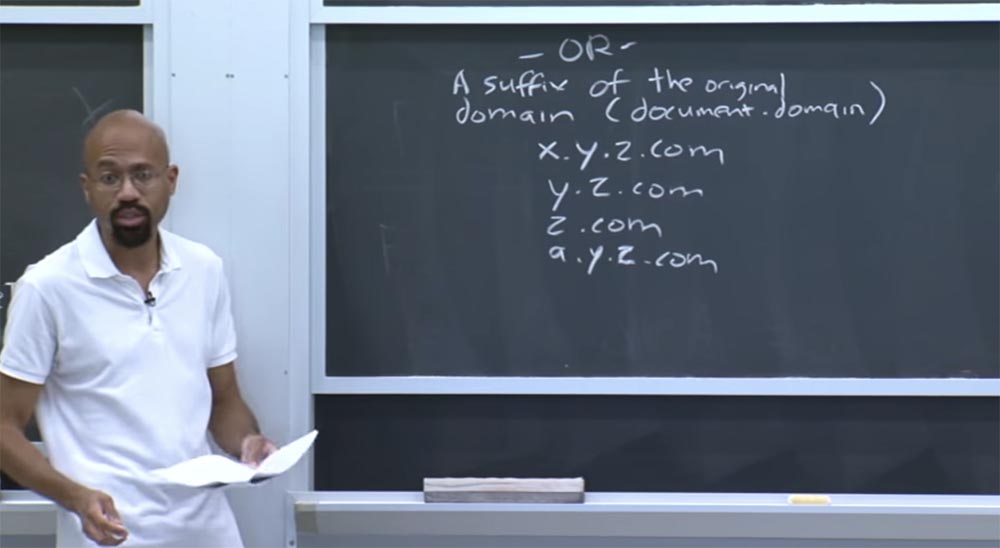 - OR -
A suffix of the original
domain (document.domain)
x.y.z.com
y.z.com
z.com
a.y.z.com